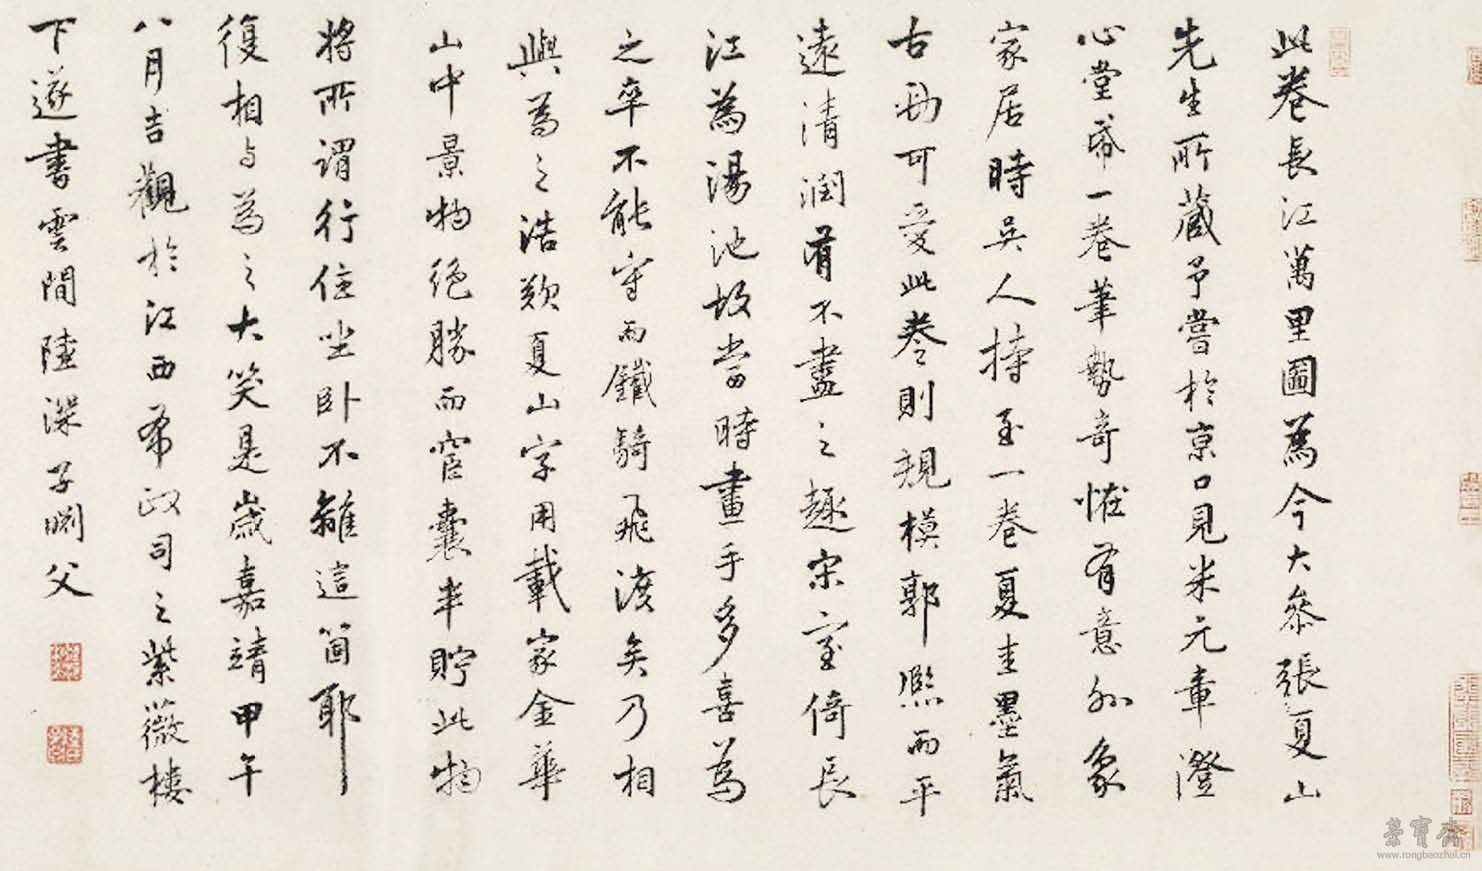 此卷長江萬里圖為今大參張夏山
先生所藏予嘗於京口見米元章澄
心堂帋一卷筆勢奇恠有意外象
家居時吳人持至一卷夏圭墨氣
古勁可愛此卷則規模郭熙而平
遠清潤有不盡之趣宋室倚長
江為湯池故當時畫手多喜為
之卒不能守而鐵騎飛渡矣乃相
與為之浩歎夏山字用載家金華
山中景物絕勝而宦囊半貯此物
將所謂行住坐卧不離這箇耶
復相与為之大笑是歲嘉靖甲午
八月吉觀於江西布政司之紫薇樓
下遂書雲間陸深子淵父
榮寶齋
www.rongbaozhai.cn